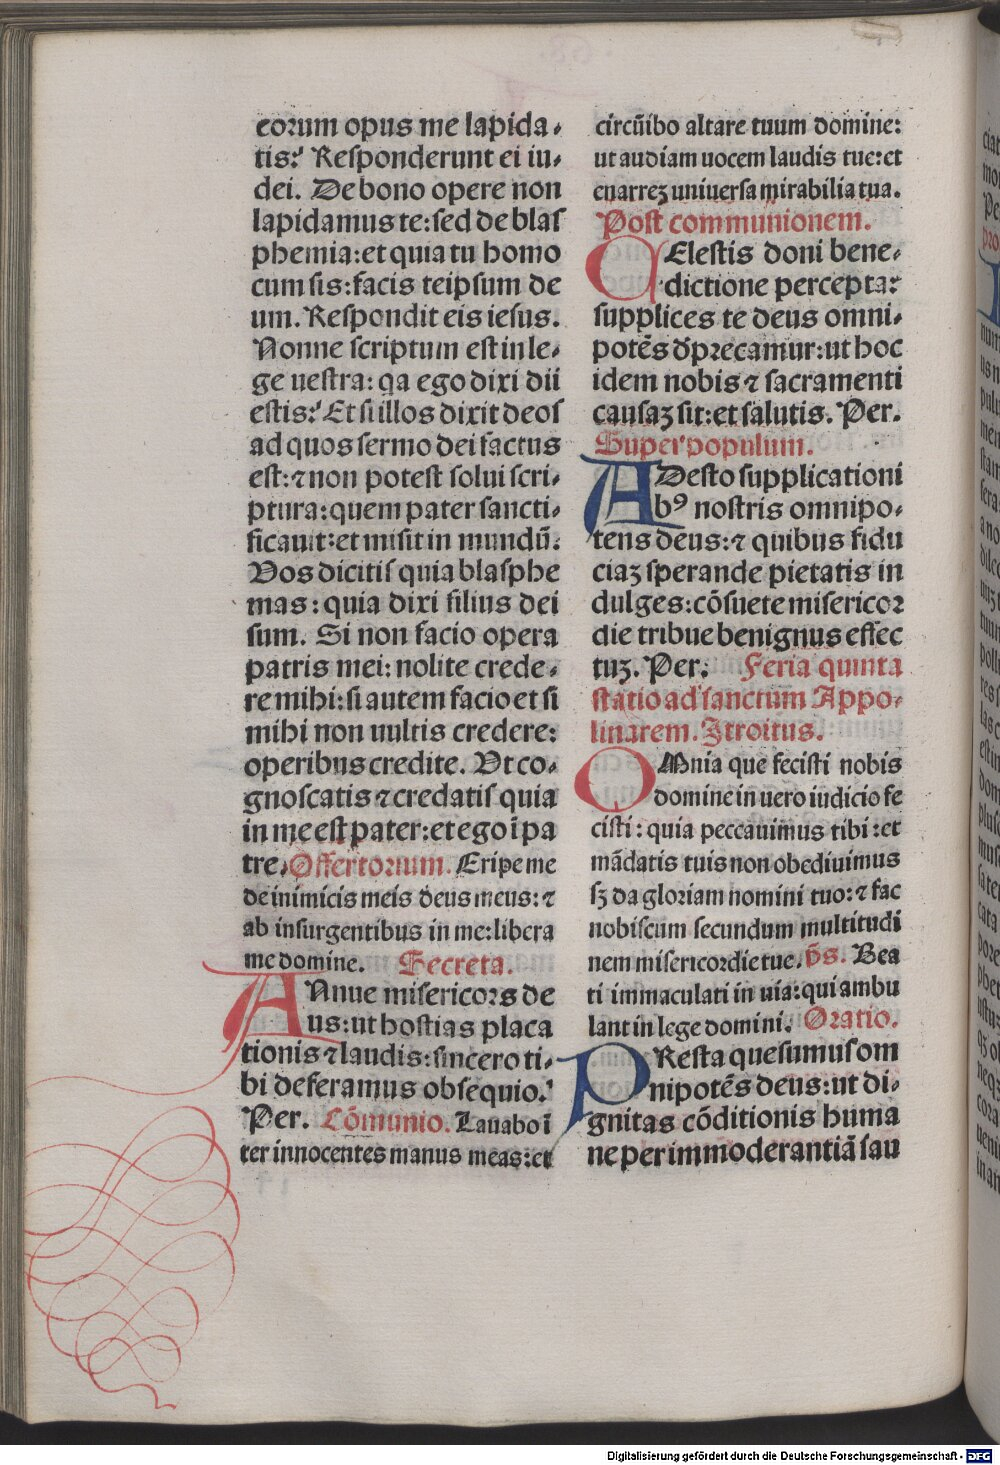 eorum opus me lapida-
tis? Responderunt ei iu-
dei. De bono opere non
lapidamus te: sed de blas
phemia: et quia tu homo
cum sis: facis teipsum de
um. Respondit eis iesus.
Nonne scriptum est in le-
ge uestra: qa ego dixi dii
estis? Et si illos dixit deos
ad quos sermo dei factus
est: ⁊ non potest solui scri-
ptura: quem pater sancti-
ficauit: et misit in mundū.
Vos dicitis quia blasphe
mas: quia dixi filius dei
sum. Si non facio opera
patris mei: nolite crede-
re mihi: si autem facio et si
mihi non uultis credere:
operibus credite. Vt co-
gnoscatis ⁊ credatis quia
in me est pater: et ego ī pa
tre. Offertorium. Eripe me
de inimicis meis deus meus: ⁊
ab insurgentibus in me: libera
me domine. Secreta.
ANnue misericors de
us: ut hostias placa
tionis ⁊ laudis: sincero ti-
bi deferamus obsequio.
Per. Cōmunio. Lauabo ī
ter innocentes manus meas: et
circūibo altare tuum domine:
ut audiam uocem laudis tue: et
enarreꝫ uniuersa mirabilia tua.
Post communionem.
CElestis doni bene-
dictione percepta:
supplices te deus omni-
potēs dp̄recamur: ut hoc
idem nobis ⁊ sacramenti
causaꝫ sit: et salutis. Per.
Super populum.
ADesto supplicationi
bꝰ nostris omnipo-
tens deus: ⁊ quibus fidu
ciaꝫ sperande pietatis in
dulges: cōsuete misericor
die tribue benignus effec
tuꝫ. Per. Feria quinta
statio ad sanctum Appo-
linarem. Itroitus.
OMnia que fecisti nobis
domine in uero iudicio fe
cisti: quia peccauimus tibi: et
mādatis tuis non obediuimus
sꝫ da gloriam nomini tuo: ⁊ fac
nobiscum secundum multitudi
nem misericordie tue. p̄s. Bea
ti immaculati in uia: qui ambu
lant in lege domini. Oratio.
PResta quesumus om
nipotēs deus: ut di-
gnitas cōditionis huma
ne per immoderantiā sau
Digitalisierung gefördert durch die Deutsche Forschungsgemeinschaft - DFG